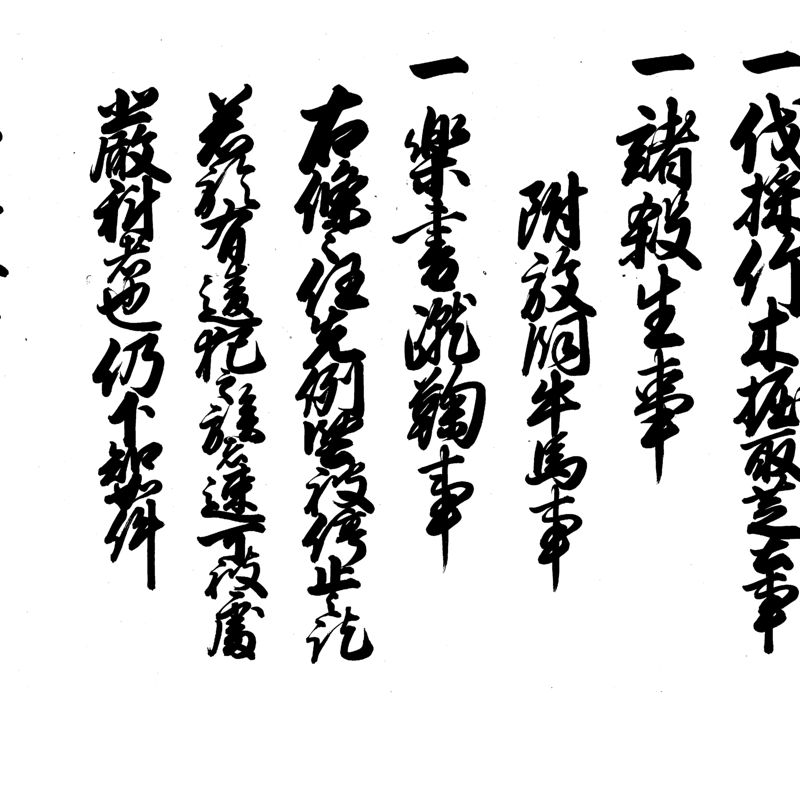 一伐採竹木掘取芝土事
一諸殺生事
附放飼牛馬事
一楽書蹴鞠事
右條々任先例堅被停止之訖
若於有違犯之族者速可被處
嚴科者也仍下知如件